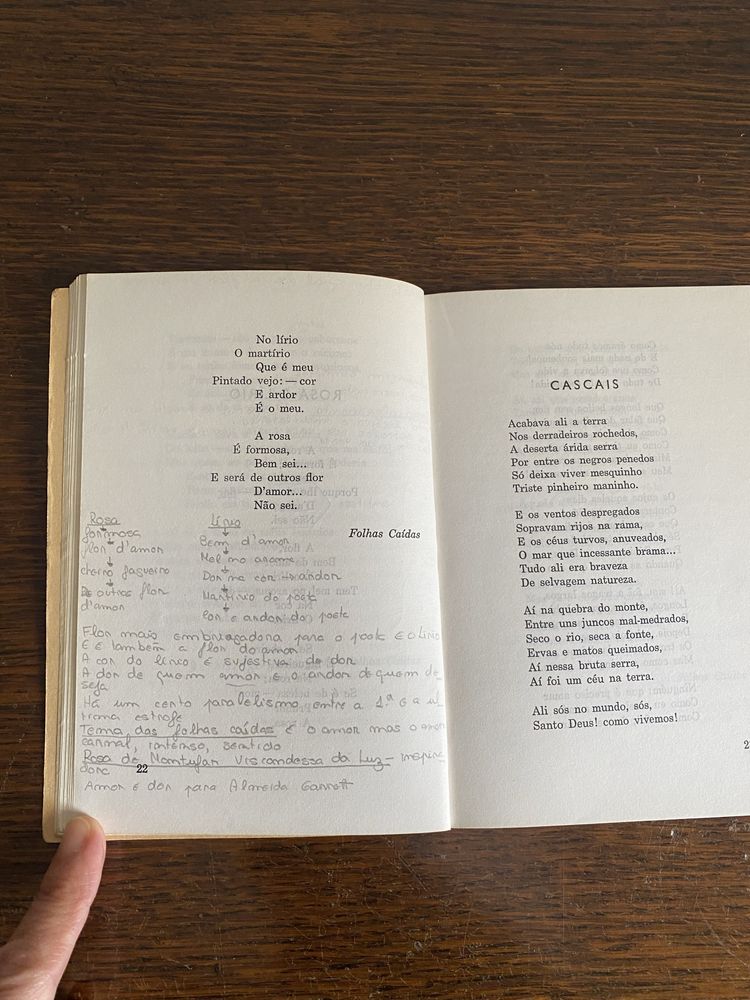 No lírio
O martírio
Que é meu
Pintado vejo: — cor
E ardor
É o meu.
A rosa
É formosa,
Bem sei...
E será de outros flor
D'amor...
Não sei.
Folhas Caídas
Rosa
formosa
flor d'amor
cheiro fagueiro
De outros flor
d'amor
Lírio
Bem d'amor
Mel no aroma
Dor na cor → ardor
Martírio do poeta
Cor e ardor do poeta
Flor mais embriagadora para o poeta é o lírio
E é também a flor do amor
A cor do lírico é sujestiva de dor
A dor de quem amor e o ardor de quem de-
seja
Há um certo paralelismo entre a 1.ª e a úl
tima estrofe
Tema das folhas caídas é o amor mas o amor
carnal, intenso, sentido
Rosa de Montufar Viscondessa da Luz - inspira
dora
22
Amor e dor para Almeida Garrett
CASCAIS
Acabava ali a terra
Nos derradeiros rochedos,
A deserta árida serra
Por entre os negros penedos
Só deixa viver mesquinho
Triste pinheiro maninho.
E os ventos despregados
Sopravam rijos na rama,
E os céus turvos, anuveados,
O mar que incessante brama...
Tudo ali era braveza
De selvagem natureza.
Aí na quebra do monte,
Entre uns juncos mal-medrados,
Seco o rio, seca a fonte,
Ervas e matos queimados,
Aí nessa bruta serra,
Aí foi um céu na terra.
Ali sós no mundo, sós,
Santo Deus! como vivemos!